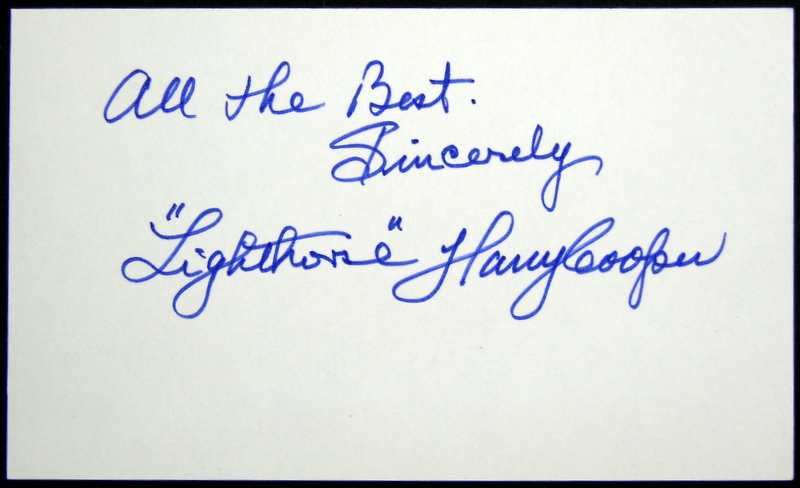 All the Best.
Sincerely
"Lighthorse" Harry Cooper